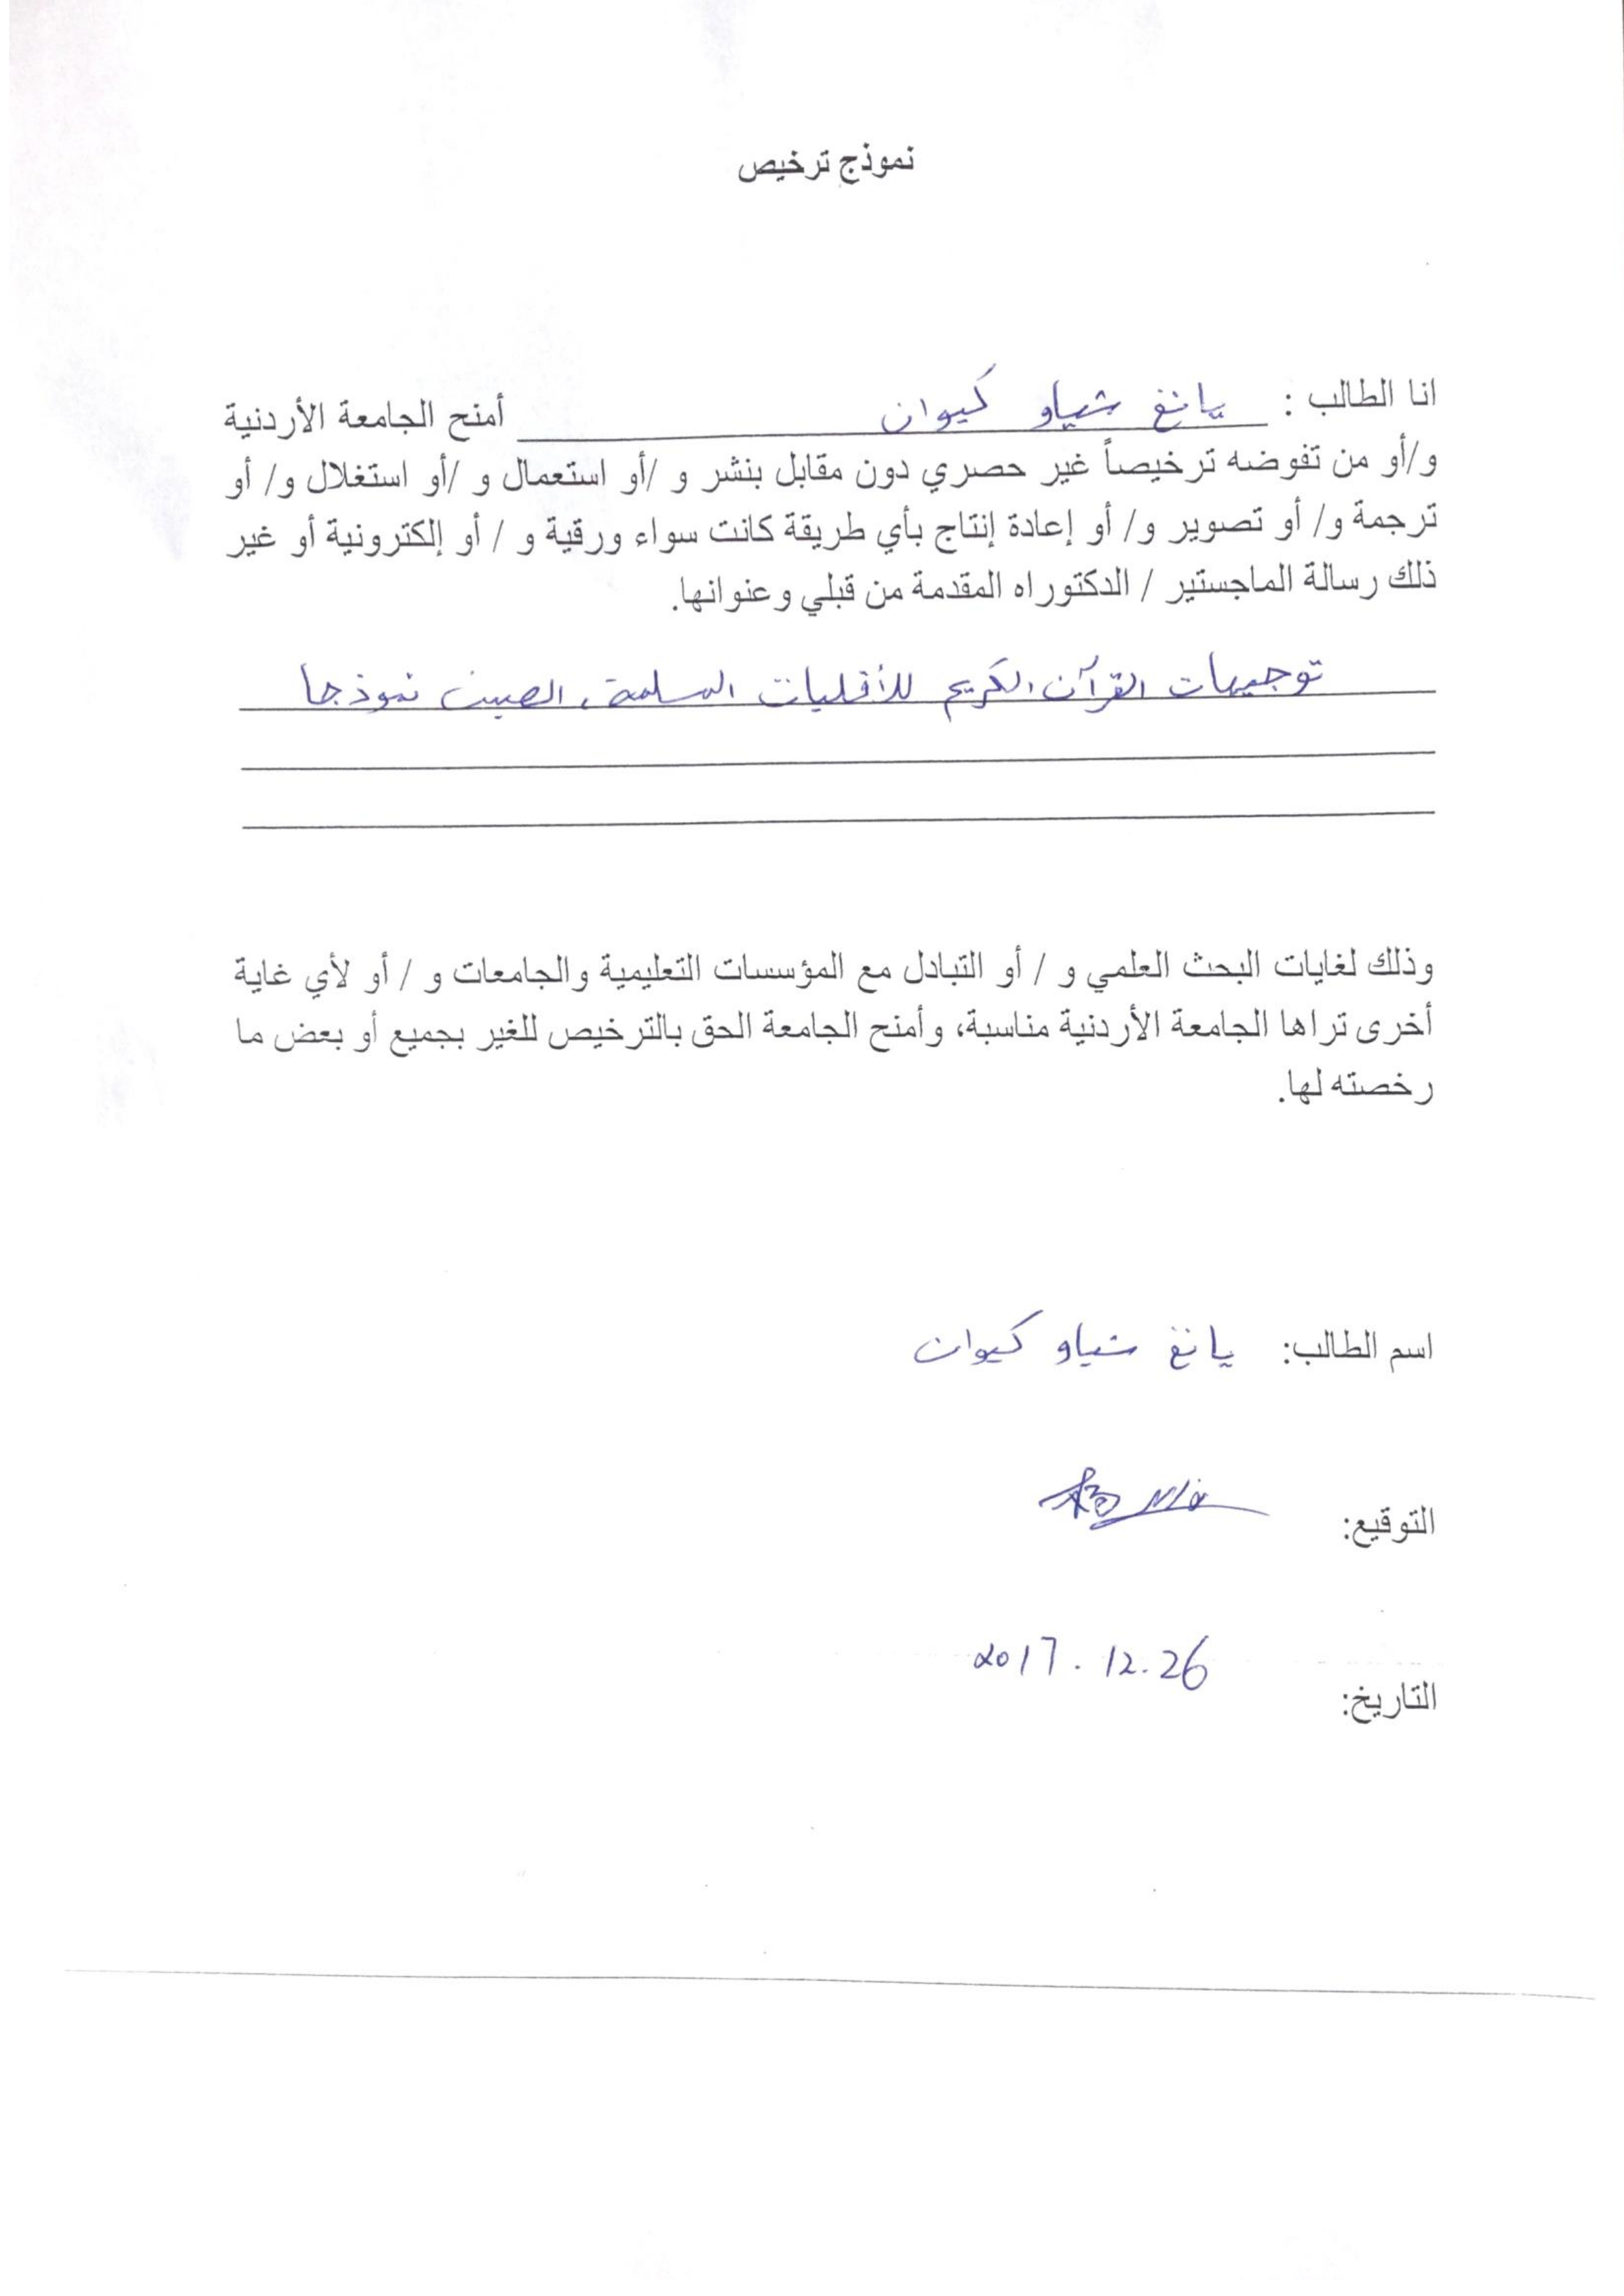 نموذج ترخيص
انا الطالب : يانغ شياو كيوان أمنح الجامعة الأردنية
و/أو من تفوضه ترخيصاً غير حصري دون مقابل بنشر و /أو استعمال و /أو استغلال و/ أو
ترجمة و/ أو تصوير و/ أو إعادة إنتاج بأي طريقة كانت سواء ورقية و / أو إلكترونية أو غير
ذلك رسالة الماجستير / الدكتوراه المقدمة من قبلي وعنوانها.
توجيهات القرآن الكريم للأقليات المسلمة، الصين نموذجا
وذلك لغايات البحث العلمي و / أو التبادل مع المؤسسات التعليمية والجامعات و / أو لأي غاية
أخرى تراها الجامعة الأردنية مناسبة، وأمنح الجامعة الحق بالترخيص للغير بجميع أو بعض ما
رخصته لها.
اسم الطالب: يانغ شياو كيوان
التوقيع:
2017. 12.26
التاريخ: